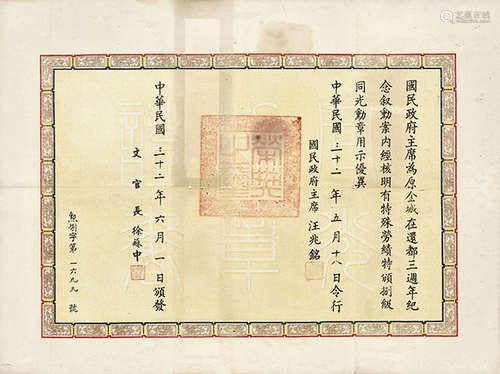 國民政府主席為原金城在還都三週年紀
念叙勳案内經核明有特殊勞績特頒捌級
同光勳章用示優異
中華民國三十二年五月十八日令行
國民政府主席汪兆銘
中華民國三十二年六月一日頒發
文官長徐蘇中
勲捌字第一六九九號